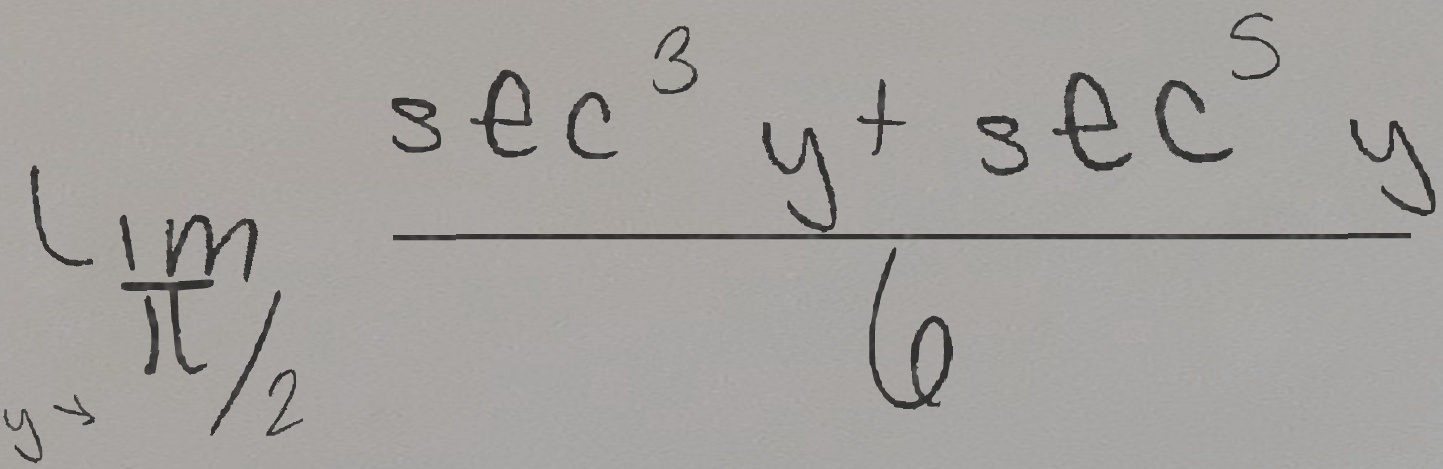 lim y→ π/2 (sec³ y + sec⁵ y)/6